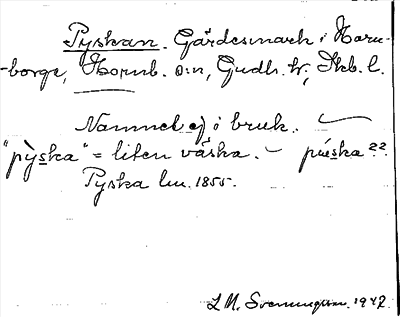 Pyskan. Gärdesmark i Horn-
borga, Hornb. s:n, Gudh. hd, Skb. l.
Namnet ej i bruk.
"pỳska" = liten väska. – púeska??
Pyska lm. 1855.
L M. Svenungsson. 1947.